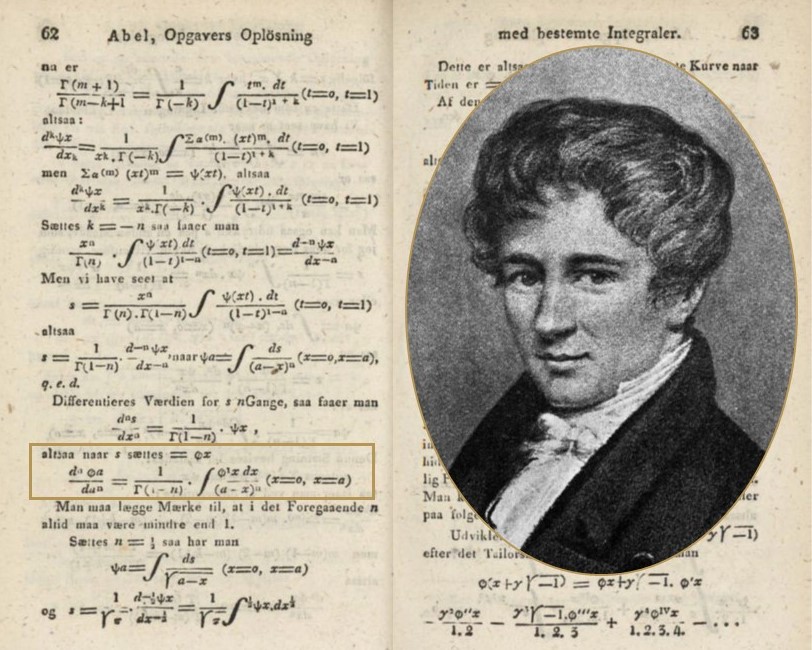 62 Abel, Opgavers Oplösning
nu er
Γ(m + 1) / Γ(m−k+1 = 1 / Γ(−k) ∫ tᵐ. dt / (1−t)¹⁺ᵏ (t=0, t=1)
altsaa:
dᵏψx / dxᵏ = 1 / xᵏ.Γ(−k) ∫ Σα⁽ᵐ⁾. (xt)ᵐ. dt / (1−t)¹⁺ᵏ (t=0, t=1)
men Σα⁽ᵐ⁾ (xt)ᵐ = ψ(xt), altsaa
dᵏψx / dxᵏ = 1 / xᵏ.Γ(−k) . ∫ ψ(xt) . dt / (1−t)¹⁺ᵏ (t=0, t=1)
Sættes k = − n saa faaer man
xⁿ / Γ(n) . ∫ ψ(xt) dt / (1−t)¹⁻ⁿ (t=0, t=1) = d⁻ⁿψx / dx⁻ⁿ
Men vi have seet at
s = xⁿ / Γ(n).Γ(1−n) ∫ ψ(xt) . dt / (1−t)¹⁻ⁿ (t=0, t=1)
altsaa
s = 1 / Γ(1−n) . d⁻ⁿψx / dx⁻ⁿ, naar ψa = ∫ ds / (a−x)ⁿ (x=0, x=a),
q. e. d.
Differentieres Værdien for s nGange, saa faaer man
dⁿs / dxⁿ = 1 / Γ(1−n) . ψx ,
altsaa naar s sættes = φx
dⁿ φa / daⁿ = 1 / Γ(1−n) . ∫ φ'x dx / (a−x)ⁿ (x=0, x=a)
Man maa lægge Mærke til, at i det Foregaaende n
altid maa være mindre end 1.
Sættes n = ½ saa har man
ψa = ∫ ds / √a−x (x=0, x=a)
og s = 1 / √π . d^−½ψx / dx^−½ = 1 / √π ∫^½ ψx.dx^½
med bestemte Integraler. 63
Dette er altsaa Kurve naar
Tiden er =
Af den
lig
Man
paa følge
Udvikle √−1)
efter det Tailors man
φ(x+y√−1) = φx+y√−1. φ'x
− y²φ''x / 1. 2 − y³√−1.φ'''x / 1. 2. 3 + y⁴φᴵⱽx / 1. 2. 3. 4. − . . .